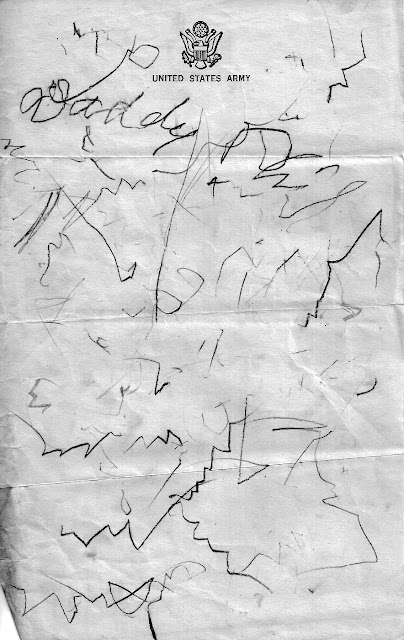 UNITED STATES ARMY
Daddy